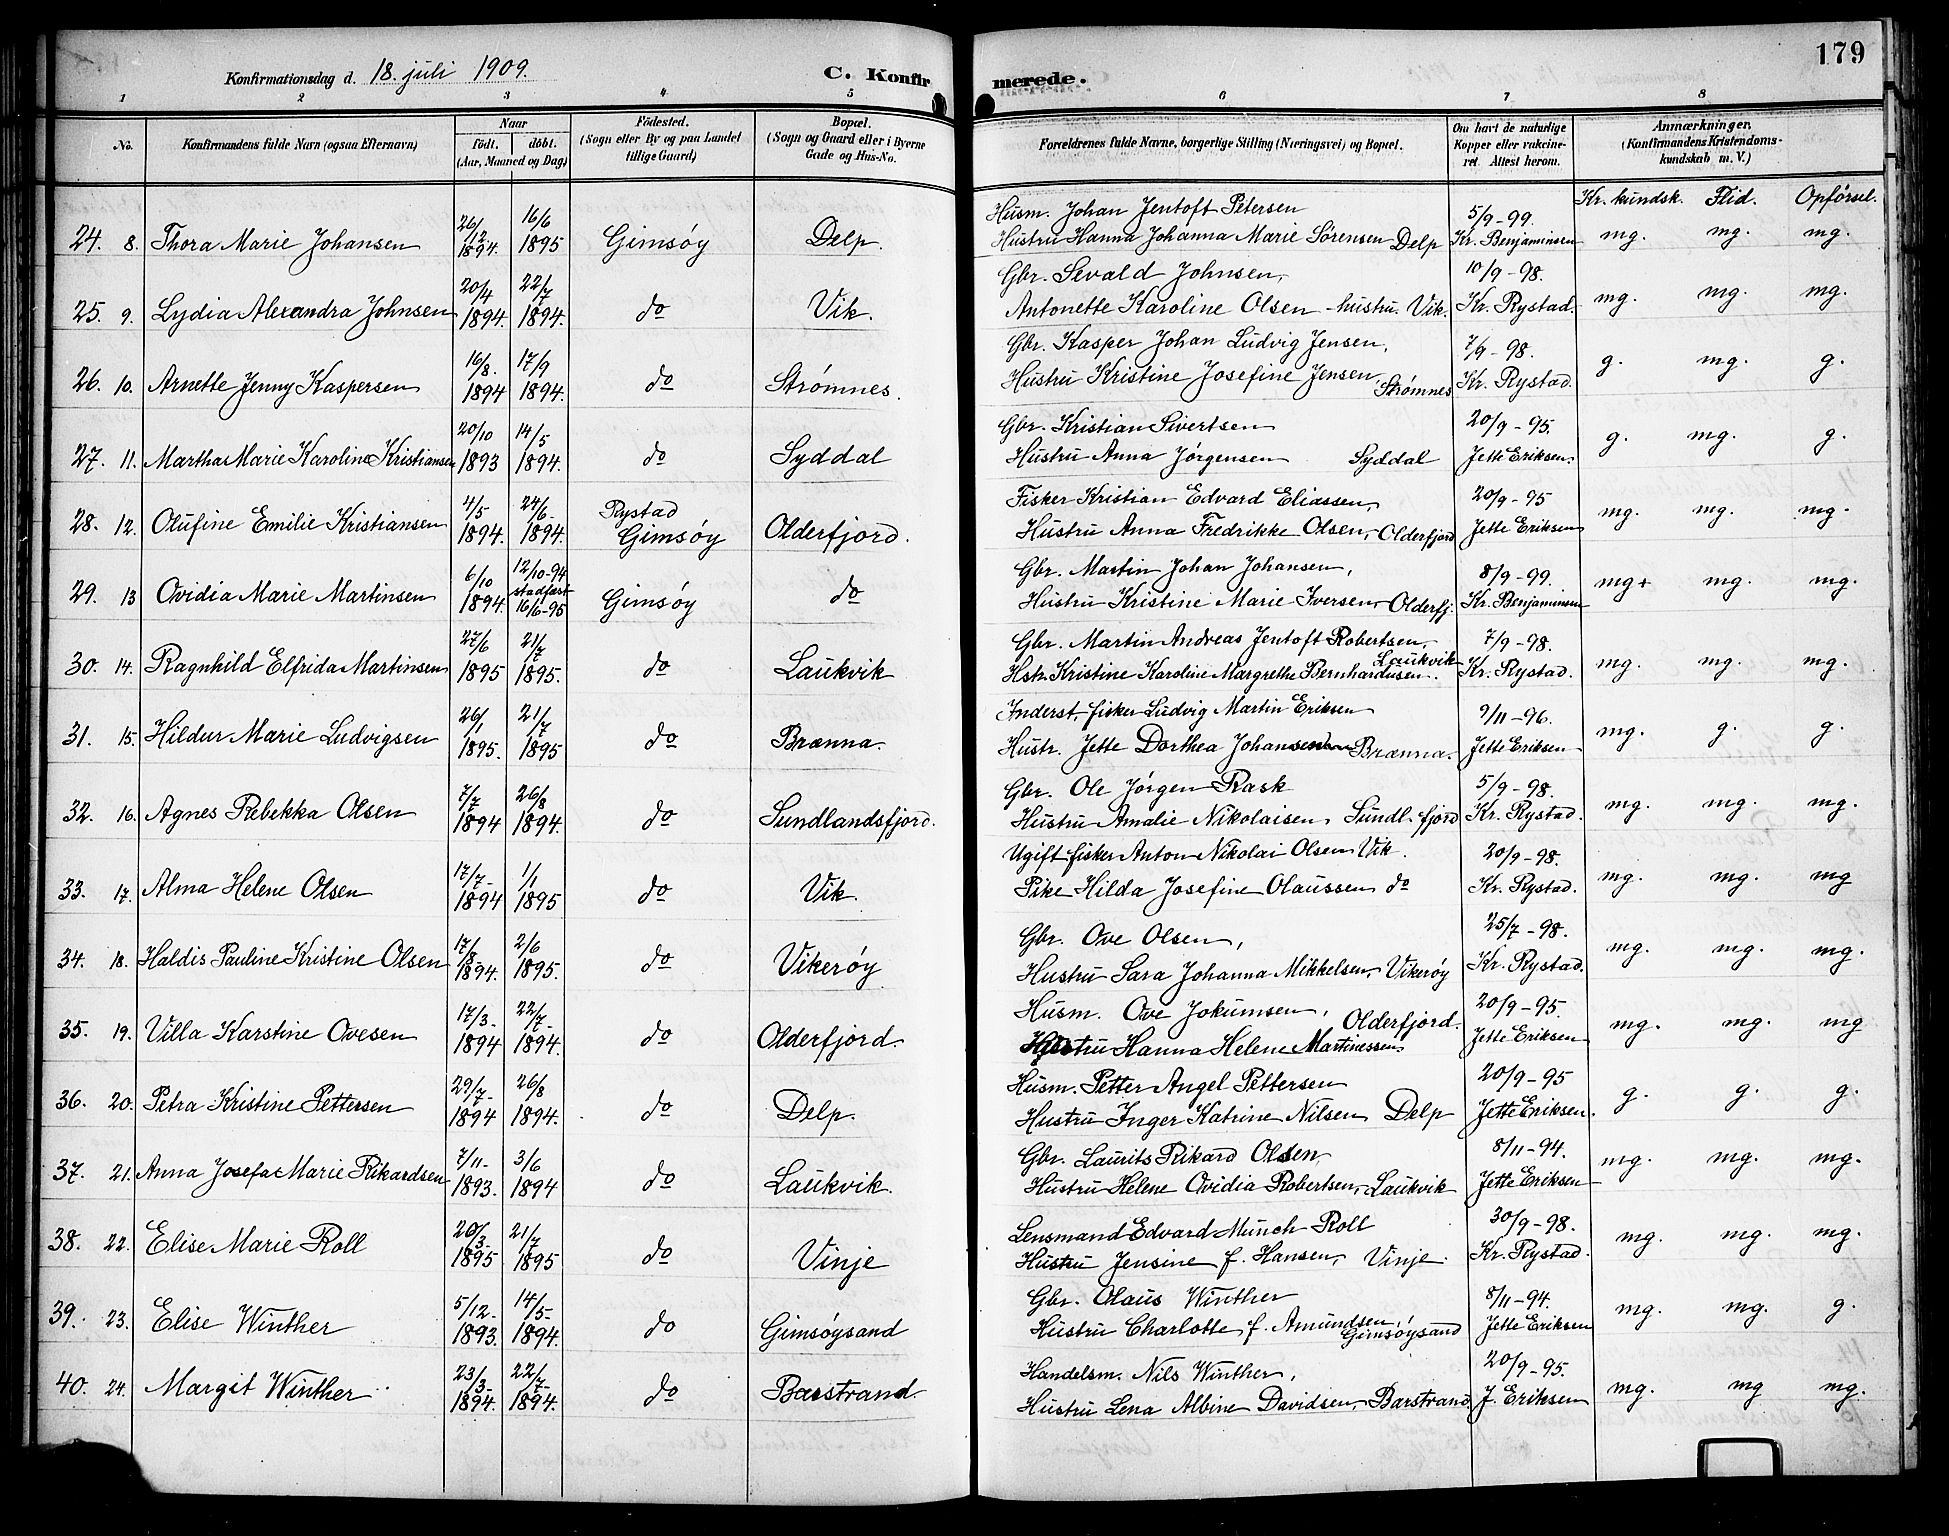 179
Konfirmationsdag d. 18. juli 1909.
C. Konfirmerede.
1 2 3 4 5 6 7 8
No. Konfirmandens fulde Navn (ogsaa Efternavn) Naar født. døbt. (Aar, Maaned og Dag) Fødested. (Sogn eller By og paa Landet tillige Gaard) Bopæl. (Sogn og Gaard eller i Byerne Gade og Hus-No. Forældrenes fulde Navne, borgerlige Stilling (Næringsvei) og Bopæl. Om havt de naturlige Kopper eller vakcineret. Attest herom. Anmærkninger. (Konfirmandens Kristendomskundskab m. V.)
Kr. kundsk. Flid. Opførsel.
24. 8. Thora Marie Johansen 26/12 1894. 16/6 1895 Gimsöy Delp. Husm. Johan Jentoft Petersen 5/9-99.
Hustru Hanna Johanna Marie Sørensen Delp Kr. Benjaminsen mg. mg. mg.
25. 9. Lydia Alexandra Johnsen 20/4 1894. 22/7 1894. do Vik. Gbr. Sevald Johnsen, 10/9-98.
Antonette Karoline Olsen - hustru. Vik. Kr. Rystad. mg. mg. mg.
26. 10. Arnette Jenny Kaspersen 16/8. 1894 17/9 1894. do Strømnes. Gbr. Kasper Johan Ludvig Jensen, 7/9-98.
Hustru Kristine Josefine Jensen Strømnes Kr. Rystad. g. mg. g.
27. 11. Martha Marie Karoline Kristiansen 20/10 1893 14/5 1894. do Syddal Gbr. Kristian Sivertsen 20/9-95.
Hustru Anna Jørgensen Syddal Jette Eriksen. g. mg. g.
28. 12. Olufine Emilie Kristiansen 4/5 1894. 24/6 1894. Rystad Gimsöy Olderfjord. Fisker Kristian Edvard Eliassen, 20/9-95
Hustru Anna Fredrikke Olsen, Olderfjord Jette Eriksen mg. mg. mg.
29. 13 Ovidia Marie Martinsen 6/10 1894. 12/10-94 stadfæst 16/6-95 Gimsöy do Gbr. Martin Johan Johansen, 8/9-99.
Hustru Kristine Marie Iversen, Olderfj. Kr. Benjaminsen mg+ mg. mg.
30. 14. Ragnhild Elfrida Martinsen 27/6 1895 21/7 1895. do Laukvik Gbr. Martin Andreas Jentoft Robertsen, 7/9-98.
Hstr. Kristine Karoline Margrethe Bernhardusen. Laukvik Kr. Rystad. mg. mg. mg.
31. 15. Hildur Marie Ludvigsen 26/1 1895. 21/7 1895 do Brænna. Inderst, fisker Ludvig Martin Eriksen 9/11-96.
Hustr. Jette Dorthea Johansen Brænna. Jette Eriksen mg. g. g.
32. 16. Agnes Rebekka Olsen 7/7 1894 26/8 1894. do Sundlandsfjord. Gbr. Ole Jørgen Rask 5/9-98.
Hustru Amalie Nikolaisen, Sundl. fjord Kr. Rystad. mg. mg. mg.
33. 17. Alma Helene Olsen 17/7- 1894 1/1 1895 do Vik. Ugift fisker Anton Nikolai Olsen Vik. 20/9-98.
Pike Hilda Josefine Olaussen do Kr. Rystad. mg. mg. mg
34. 18. Haldis Pauline Kristine Olsen 17/8- 1894. 2/6 1895. do Vikerøy Gbr. Ove Olsen, 25/7-98.
Hustru Sara Johanna Mikkelsen, Vikerøy Kr. Rystad. mg. mg. mg.
35. 19. Villa Karstine Ovesen 17/3- 1894 22/7- 1894. do Olderfjord. Husm. Ove Jokumsen, Olderfjord. 20/9-95.
Hustru Hanna Helene Martinessen Jette Eriksen mg. mg. mg
36. 20. Petra Kristine Pettersen 29/7- 1894 26/8 1894. do Delp. Husm. Petter Angel Pettersen 20/9-95
Hustru Inger Katrine Nilsen Delp Jette Eriksen. g. g. g.
37. 21. Anna Josefa Marie Rikardsen 7/11- 1893. 3/6 1894 do Laukvik. Gbr. Laurits Rikard Olsen, 8/11-94.
Hustru Helene Ovidia Robertsen, Laukvik Jette Eriksen mg. mg. mg.
38. 22. Elise Marie Roll 20/3- 1895 21/7 1895 do Vinje Lensmand Edvard Munch Roll 30/9-98.
Hustru Jensine f. Hansen, Vinje. Kr. Rystad. mg. mg. mg.
39. 23. Elise Winther 5/12- 1893. 14/5- 1894. do Gimsøysand Gbr. Olaus Winther 8/11-94.
Hustru Charlotte f. Amundsen, Gimsøysand Jette Eriksen mg. mg. g.
40. 24. Margit Winther 23/3- 1894. 22/7- 1894. do Barstrand Handelsm. Nils Winther, 20/9-95.
Hustru Lena Albine Davidsen, Barstrand. J. Eriksen mg. mg mg.